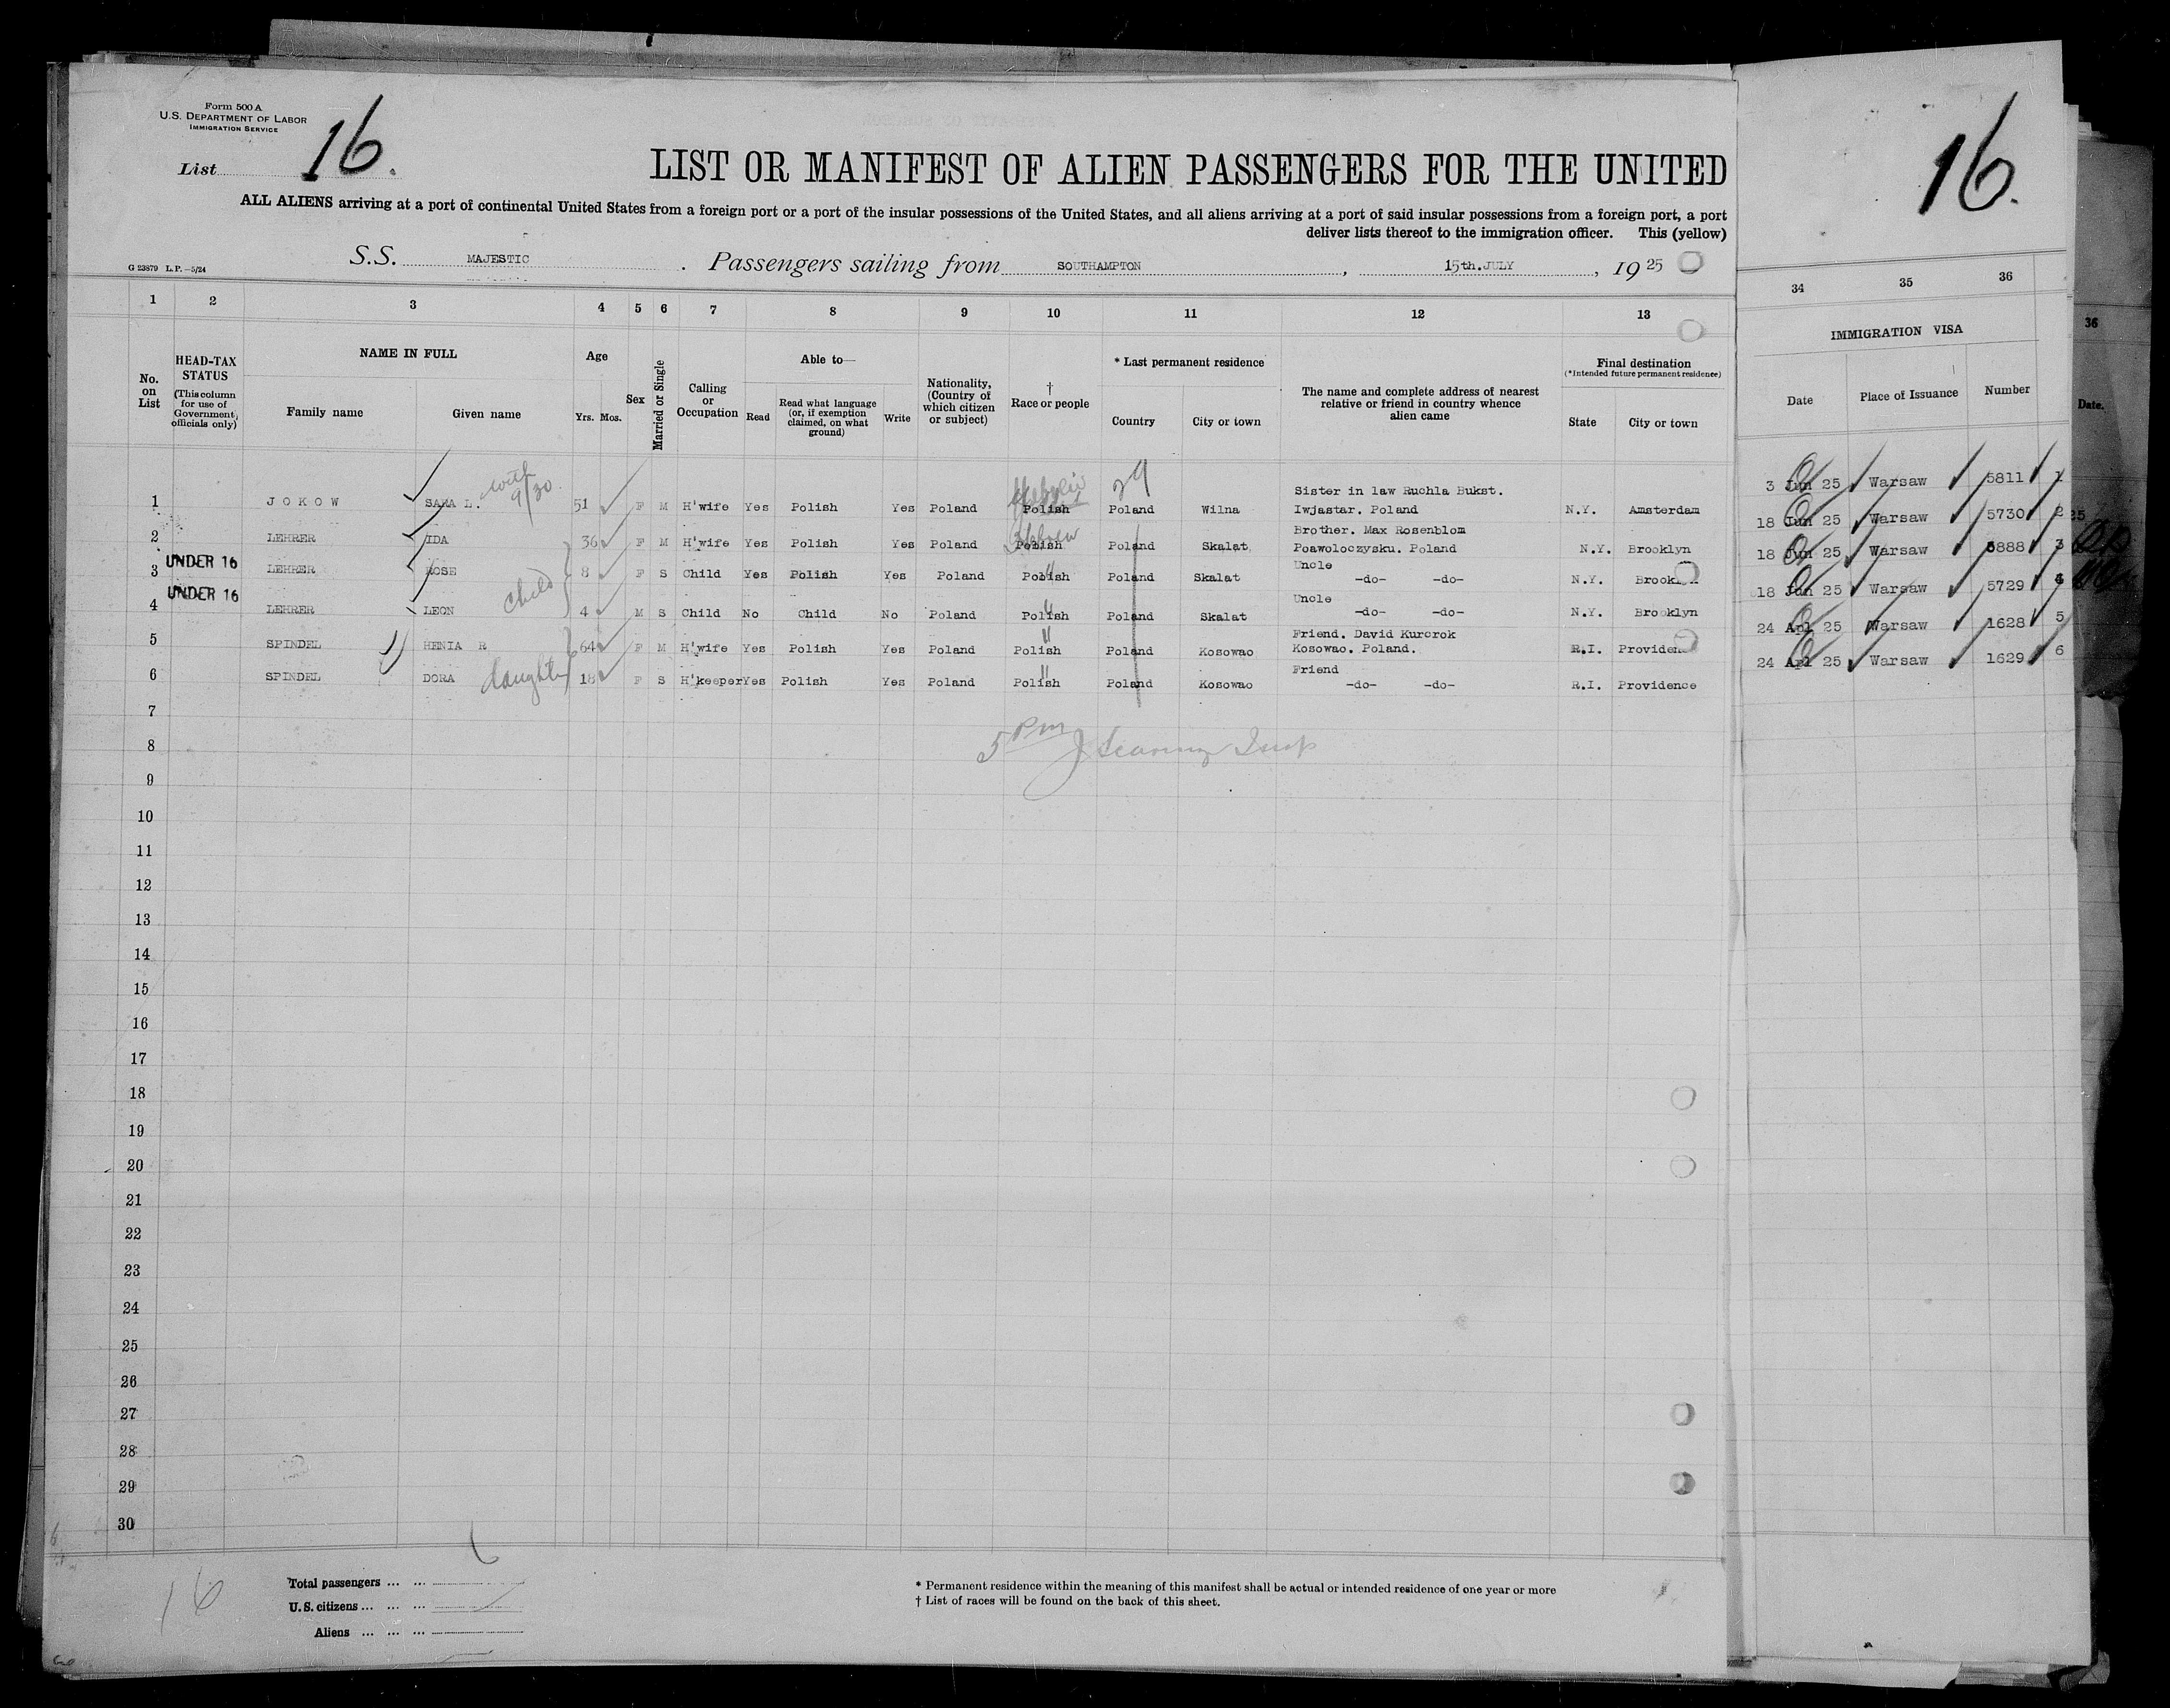 Form 500 A
U.S. DEPARTMENT OF LABOR
IMMIGRATION SERVICE
List 16.
16.
LIST OR MANIFEST OF ALIEN PASSENGERS FOR THE UNITED
ALL ALIENS arriving at a port of continental United States from a foreign port or a port of the insular possessions of the United States, and all aliens arriving at a port of said insular possessions from a foreign port, a port
deliver lists thereof to the immigration officer. This (yellow)
S.S. MAJESTIC. Passengers sailing from SOUTHAMPTON, 15th.JULY, 1925
G 23879 L.P.—5/24
1 2 3 4 5 6 7 8 9 10 11 12 13 34 35 36
36
No. on List
HEAD-TAX STATUS (This column for use of Government officials only)
NAME IN FULL
Family name Given name
Age
Yrs. Mos.
Sex
Married or Single
Calling or Occupation
Able to—
Read
Read what language (or, if exemption claimed, on what ground)
Write
Nationality, (Country of which citizen or subject)
† Race or people
* Last permanent residence
Country City or town
The name and complete address of nearest relative or friend in country whence alien came
Final destination
(*Intended future permanent residence)
State City or town
IMMIGRATION VISA
Date Place of Issuance Number
Date.
with 9/30
29
Sister in law Ruchla Bukst.
1 JOKOW SARA L. 51 F M H'wife Yes Polish Yes Poland Polish Poland Wilna Iwjastar. Poland N.Y. Amsterdam 3 Jun 25 Warsaw 5811 1
Hebrew
Brother. Max Rosenblom
2 LEHRER IDA 36 F M H'wife Yes Polish Yes Poland Polish Poland Skalat Poawoloczysku. Poland N.Y. Brooklyn 18 Jun 25 Warsaw 5730 2
UNDER 16
Uncle
3 LEHRER ROSE 8 F S Child Yes Polish Yes Poland Polish " Poland Skalat -do- -do- N.Y. Brooklyn 18 Jun 25 Warsaw 5888 3
child
UNDER 16
Uncle
4 LEHRER LEON 4 M S Child No Child No Poland Polish " Poland Skalat -do- -do- N.Y. Brooklyn 18 Jun 25 Warsaw 5729 4
Friend. David Kurorok
5 SPINDEL HENIA R 64 F M H'wife Yes Polish Yes Poland Polish " Poland Kosowao Kosowao. Poland. R.I. Providence 24 Apl 25 Warsaw 1628 5
Friend
6 SPINDEL DORA daughter 18 F S H'keeper Yes Polish Yes Poland Polish " Poland Kosowao -do- -do- R.I. Providence 24 Apl 25 Warsaw 1629 6
7
5 PM
8
9
10
11
12
13
14
15
16
17
18
19
20
21
22
23
24
25
26
27
28
29
30
16
Total passengers ... ...
U.S. citizens ... ... ...
Aliens ... ... ...
* Permanent residence within the meaning of this manifest shall be actual or intended residence of one year or more
† List of races will be found on the back of this sheet.